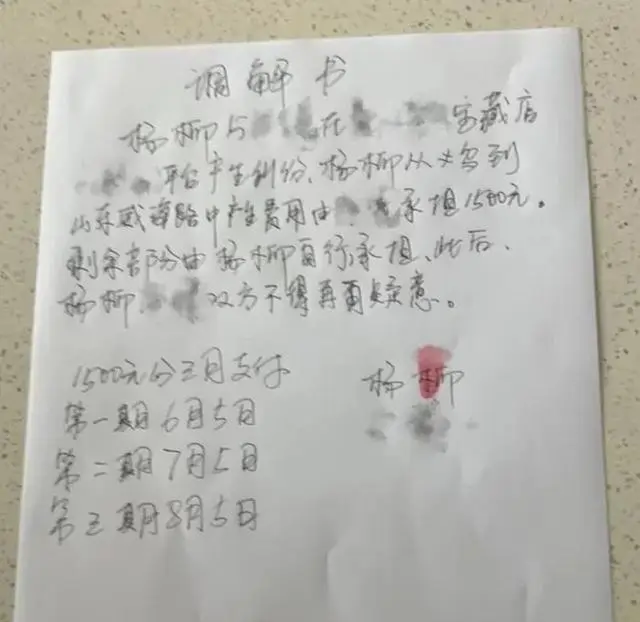 调解书
杨柳与 在 宝藏店
平台产生纠纷、杨柳从义乌到
山东威海路中产生费用由 承担1500元。
剩余部分由杨柳自行承担、此后、
杨柳、 双方不得再有疑意。
1500元分三月支付
杨柳
第一期6月5日
第二期7月5日
第三期8月5日